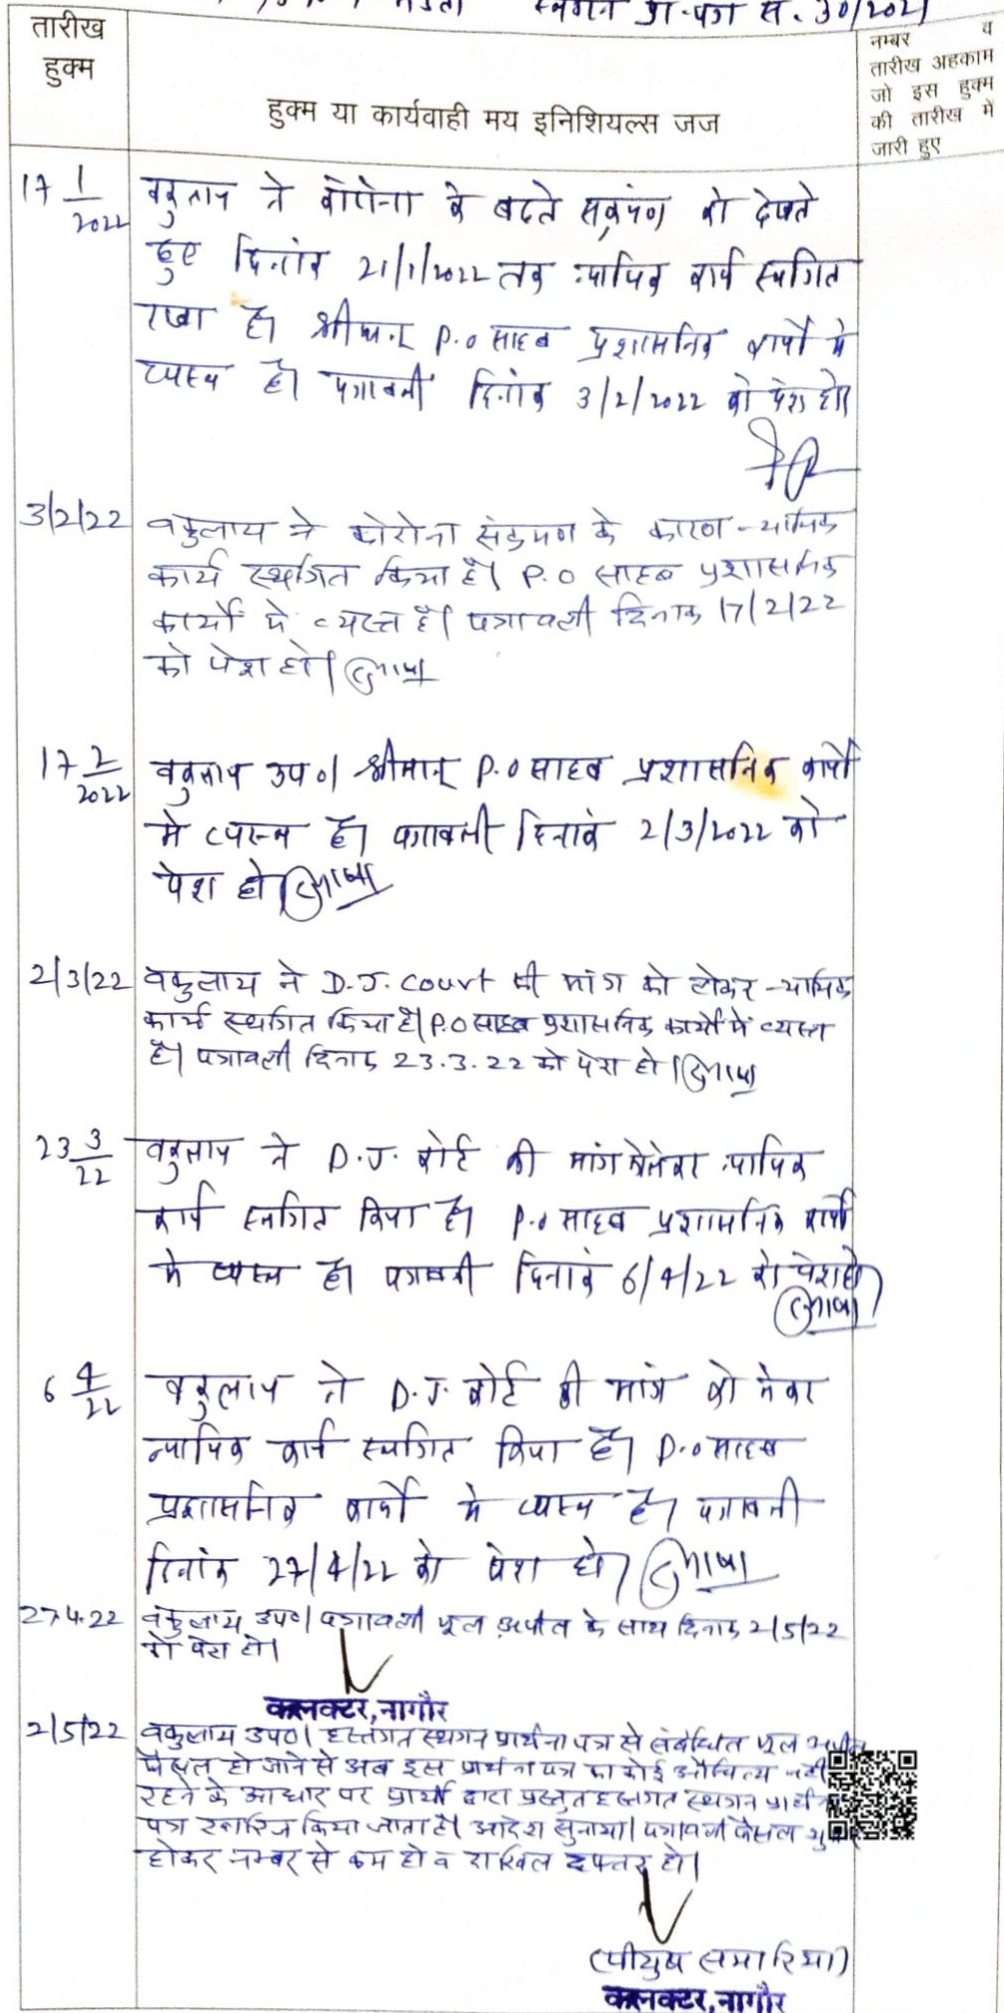 स्थगन प्रा-पत्र सं. 30/2021
तारीख
हुक्म
हुक्म या कार्यवाही मय इनिशियल्स जज
नम्बर व
तारीख अहकाम
जो इस हुक्म
की तारीख में
जारी हुए
17 1/2022 वकुलाय ने कोरोना के बढते सक्रंमण को देखते
हुए दिनांक 21/1/2022 तक न्यायिक कार्य स्थगित
रखा है। श्रीमान् P.O साहब प्रशासनिक कार्यों मे
व्यस्त है। पत्रावली दिनांक 3/2/2022 को पेश हो।
3/2/22 वकुलाय ने कोरोना संक्रमण के कारण न्यायिक
कार्य स्थगित किया है। P.O साहब प्रशासनिक
कार्यों मे व्यस्त है। पत्रावली दिनाक 17/2/22
को पेश हो।
17 2/2022 वकुलाय उप०। श्रीमान् P.O साहब प्रशासनिक कार्यो
मे व्यस्त है। पत्रावली दिनाकं 2/3/2022 को
पेश हो।
2/3/22 वकुलाय ने D.J. Court की मांग को लेकर न्यायिक
कार्य स्थगित किया है। P.O साहब प्रशासनिक कार्यो में व्यस्त
है। पत्रावली दिनाक 23.3.22 को पेश हो।
23 3/22 वकुलाय ने D.J. कोर्ट की मांग को लेकर न्यायिक
कार्य स्थगित किया है। P.O साहब प्रशासनिक कार्यो
मे व्यस्त है। पत्रावली दिनाकं 6/4/22 को पेश हो
6 4/22 वकुलाय ने D.J. कोर्ट की मांग को लेकर
न्यायिक कार्य स्थगित किया है। P.O साहब
प्रशासनिक कार्यो मे व्यस्त है। पत्रावली
दिनांक 27/4/22 को पेश हो।
27.4.22 वकुलाय उप०। पत्रावली मूल अपील के साथ दिनाक 2/5/22
को पेश हो।
कलक्टर, नागौर
2/5/22 वकुलाय उप०। हस्तगत स्थगन प्रार्थना पत्र से संबंधित मूल अपील
फैसल हो जाने से अब इस प्रार्थना पत्र का कोई औचित्य नही
रहने के आधार पर प्रार्थी द्वारा प्रस्तुत हस्तगत स्थगन प्रार्थना
पत्र खारिज किया जाता है। आदेश सुनाया। पत्रावली फैसल शुमार
होकर नम्बर से कम हो व दाखिल दफ्तर हो।
(पीयुष समारिया)
कलक्टर, नागौर